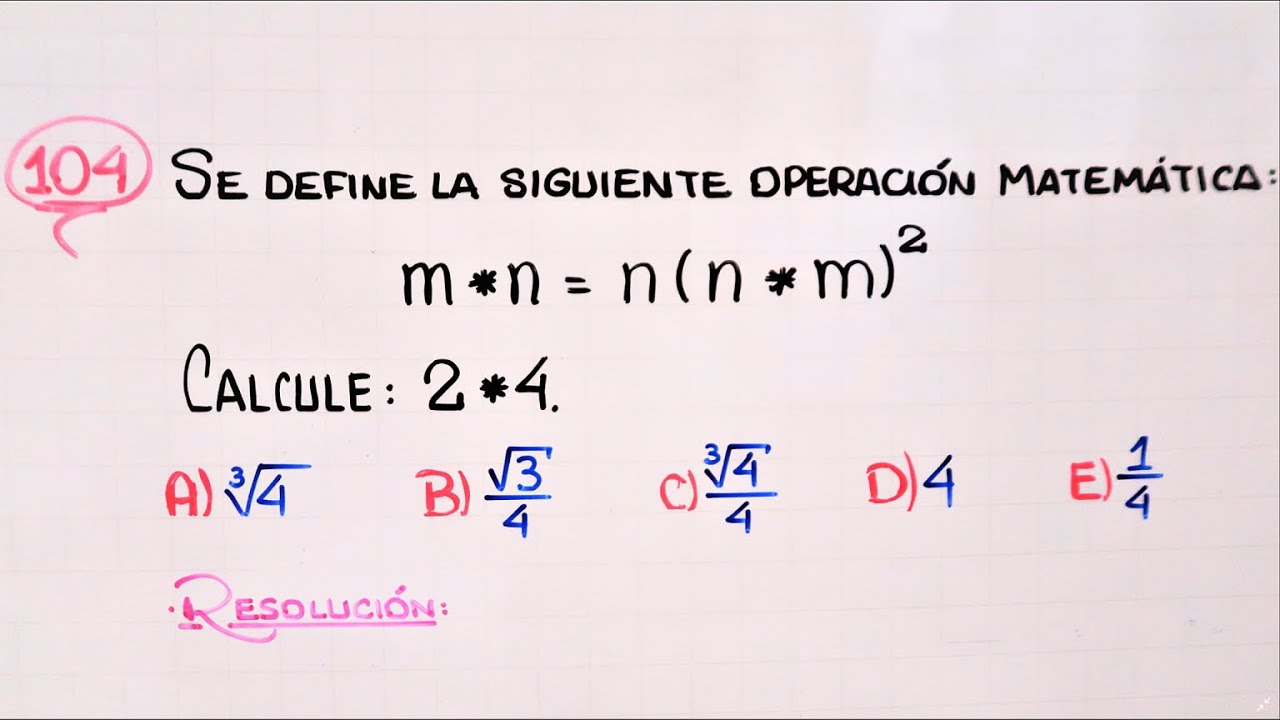 104 SE DEFINE LA SIGUIENTE OPERACIÓN MATEMÁTICA:
m * n = n(n * m)²
CALCULE: 2 * 4.
A) ∛4 B) √3/4 C) ∛4/4 D) 4 E) 1/4
RESOLUCIÓN: